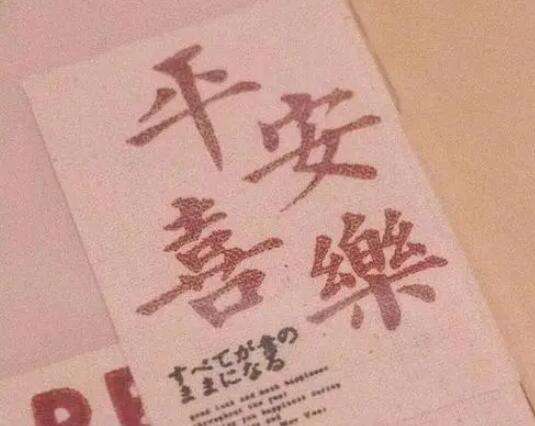 平安
喜樂
すべてが書の
ままになる
good luck and both happiness
throughout the year
you happiness during
and
New Year